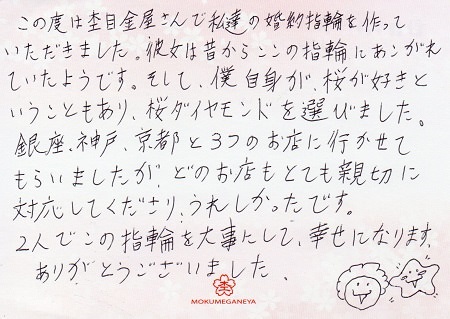 この度は杢目金屋さんで私達の婚約指輪を作って
いただきました。彼女は昔からここの指輪にあこがれ
ていたようです。そして、僕自身が、桜が好きと
いうこともあり、桜ダイヤモンドを選びました。
銀座、神戸、京都と3つのお店に行かせて
もらいましたが、どのお店もとても親切に
対応してくださり、うれしかったです。
2人でこの指輪を大事にして、幸せになります。
ありがとうございました、
MOKUMEGANEYA